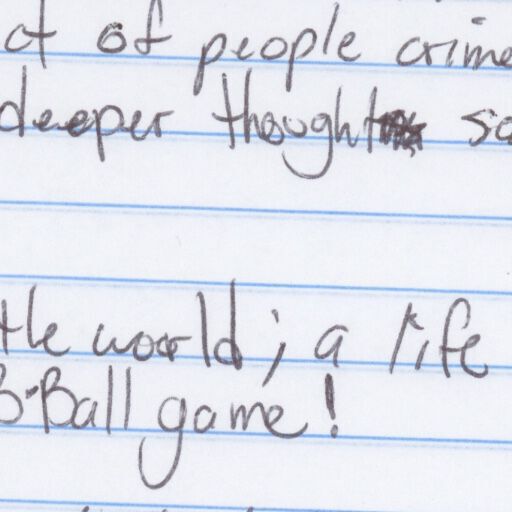 ct of people crime
deeper thought so
tle world; a life
B-Ball game!